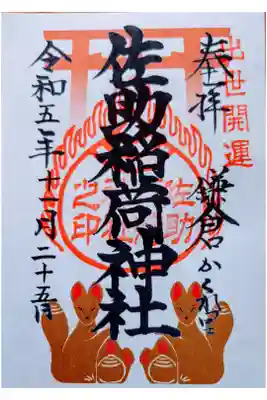 出世開運
奉拝
鎌倉かくれ里
佐助稲荷神社
令和五年十一月二十五日
佐助
之印